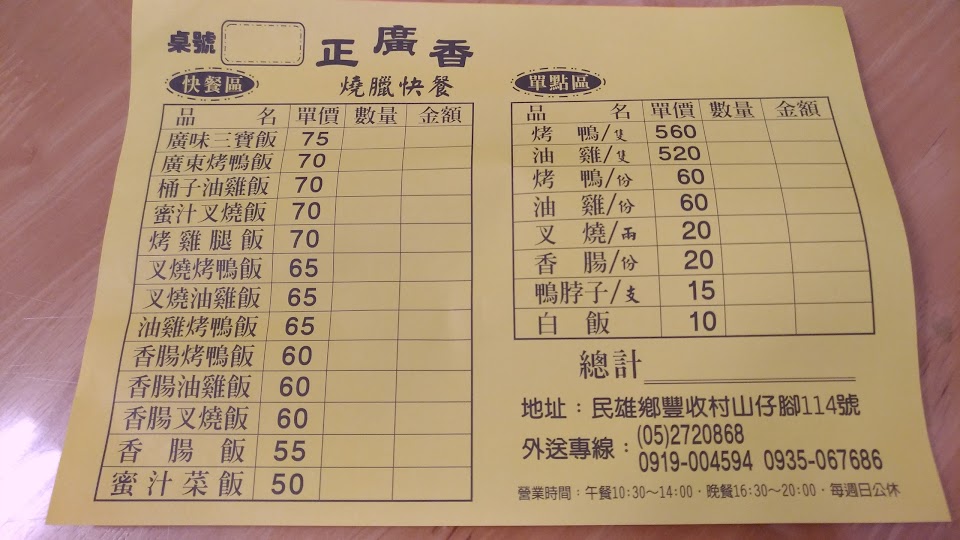 桌號
正廣香
燒臘快餐
快餐區
品名 單價 數量 金額
廣味三寶飯 75
廣東烤鴨飯 70
桶子油雞飯 70
蜜汁叉燒飯 70
烤雞腿飯 70
叉燒烤鴨飯 65
叉燒油雞飯 65
油雞烤鴨飯 65
香腸烤鴨飯 60
香腸油雞飯 60
香腸叉燒飯 60
香腸飯 55
蜜汁菜飯 50
單點區
品名 單價 數量 金額
烤鴨/隻 560
油雞/隻 520
烤鴨/份 60
油雞/份 60
叉燒/兩 20
香腸/份 20
鴨脖子/支 15
白飯 10
總計
地址：民雄鄉豐收村山仔腳114號
外送專線：(05)2720868
0919-004594 0935-067686
營業時間：午餐10:30～14:00．晚餐16:30～20:00．每週日公休